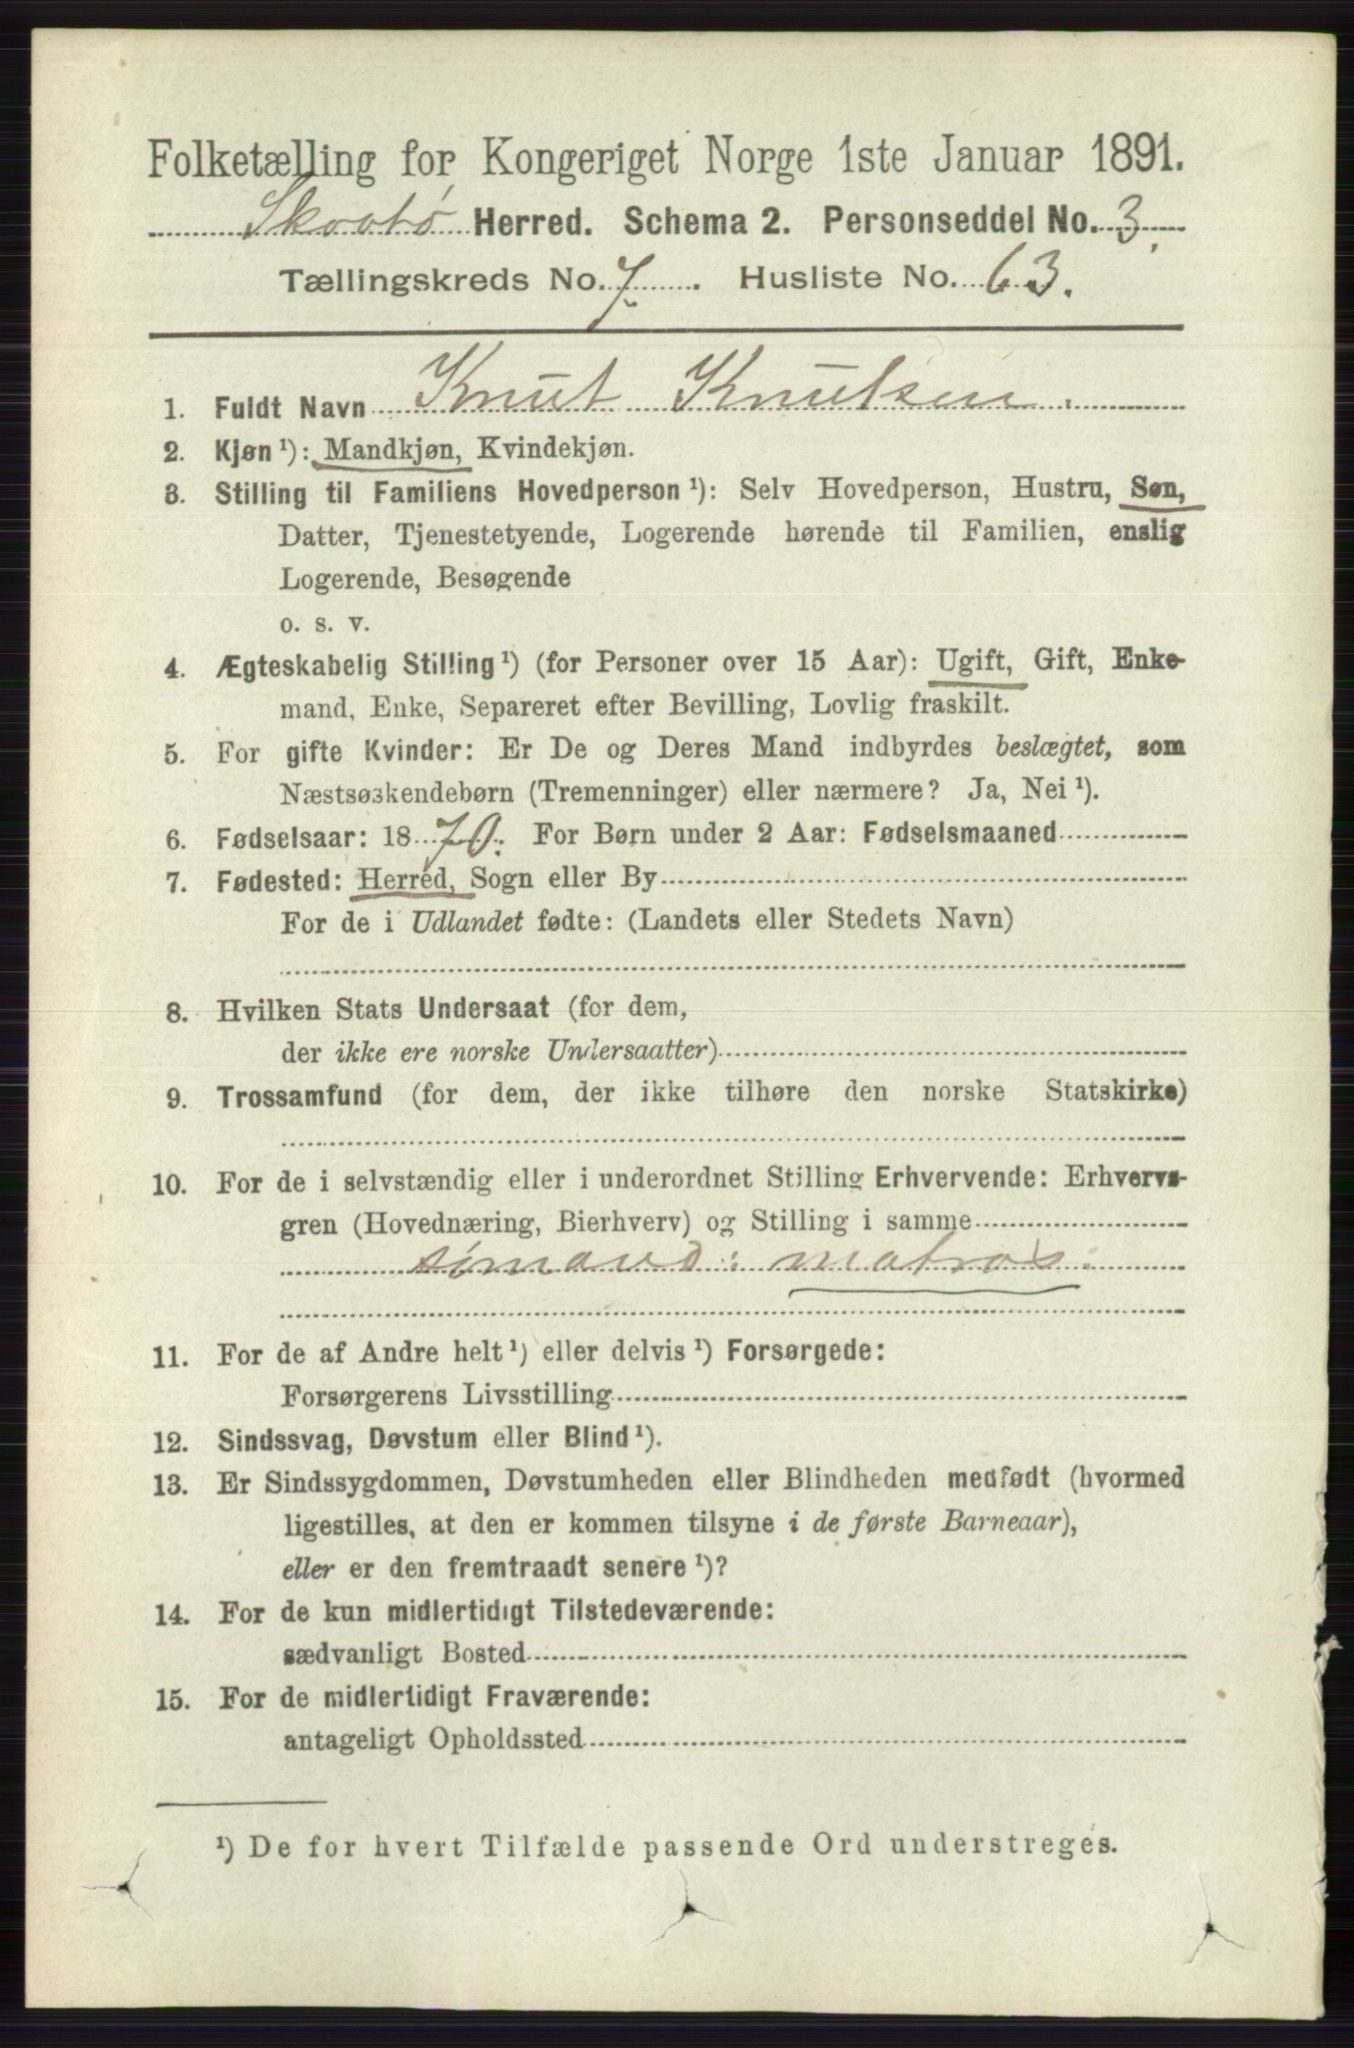 Folketælling for Kongeriget Norge 1ste Januar 1891.
Skaatø Herred. Schema 2. Personseddel No. 3.
Tællingskreds No. 7. Husliste No. 63.
1. Fuldt Navn Knut Knutsen.
2. Kjøn ¹): Mandkjøn, Kvindekjøn.
3. Stilling til Familiens Hovedperson ¹): Selv Hovedperson, Hustru, Søn,
Datter, Tjenestetyende, Logerende hørende til Familien, enslig
Logerende, Besøgende
o. s. v.
4. Ægteskabelig Stilling ¹) (for Personer over 15 Aar): Ugift, Gift, Enke-
mand, Enke, Separeret efter Bevilling, Lovlig fraskilt.
5. For gifte Kvinder: Er De og Deres Mand indbyrdes beslægtet, som
Næstsøskendebørn (Tremenninger) eller nærmere? Ja, Nei ¹).
6. Fødselsaar: 1870. For Børn under 2 Aar: Fødselsmaaned
7. Fødested: Herred, Sogn eller By
For de i Udlandet fødte: (Landets eller Stedets Navn)
8. Hvilken Stats Undersaat (for dem,
der ikke ere norske Undersaatter)
9. Trossamfund (for dem, der ikke tilhøre den norske Statskirke)
10. For de i selvstændig eller i underordnet Stilling Erhvervende: Erhvervs-
gren (Hovednæring, Bierhverv) og Stilling i samme
sømand: matros.
11. For de af Andre helt ¹) eller delvis ¹) Forsørgede:
Forsørgerens Livsstilling
12. Sindssvag, Døvstum eller Blind ¹).
13. Er Sindssygdommen, Døvstumheden eller Blindheden medfødt (hvormed
ligestilles, at den er kommen tilsyne i de første Barneaar),
eller er den fremtraadt senere ¹)?
14. For de kun midlertidigt Tilstedeværende:
sædvanligt Bosted
15. For de midlertidigt Fraværende:
antageligt Opholdssted
¹) De for hvert Tilfælde passende Ord understreges.